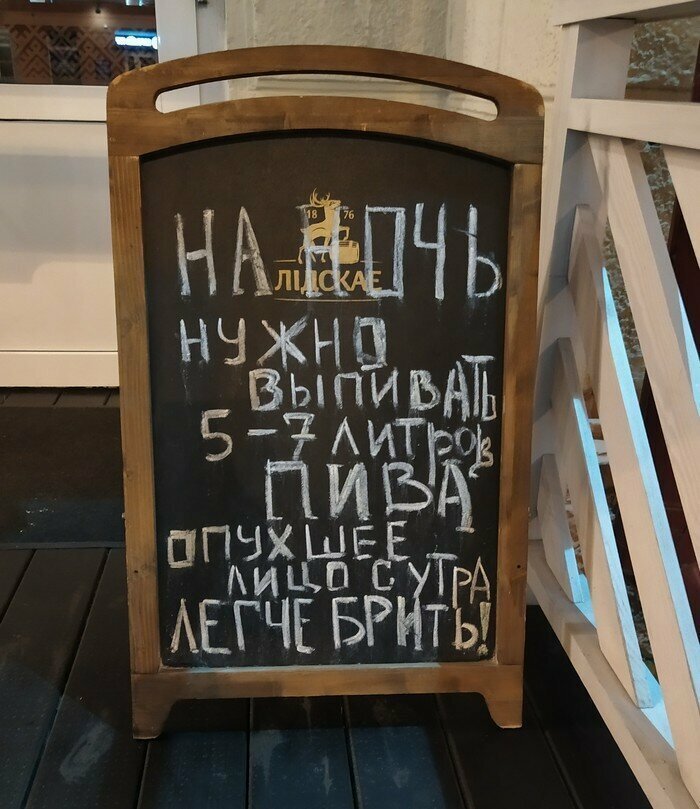 18 76
ЛІДСКАЕ
НА НОЧЬ
НУЖНО
ВЫПИВАТЬ
5-7 ЛИТРОВ
ПИВА
ОПУХШЕЕ
ЛИЦО С УТРА
ЛЕГЧЕ БРИТЬ!